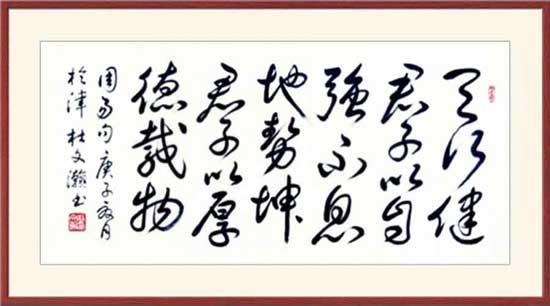 天行健
君子以自
强不息
地勢坤
君子以厚
德載物
周易句 庚子夏月
於津 杜文书